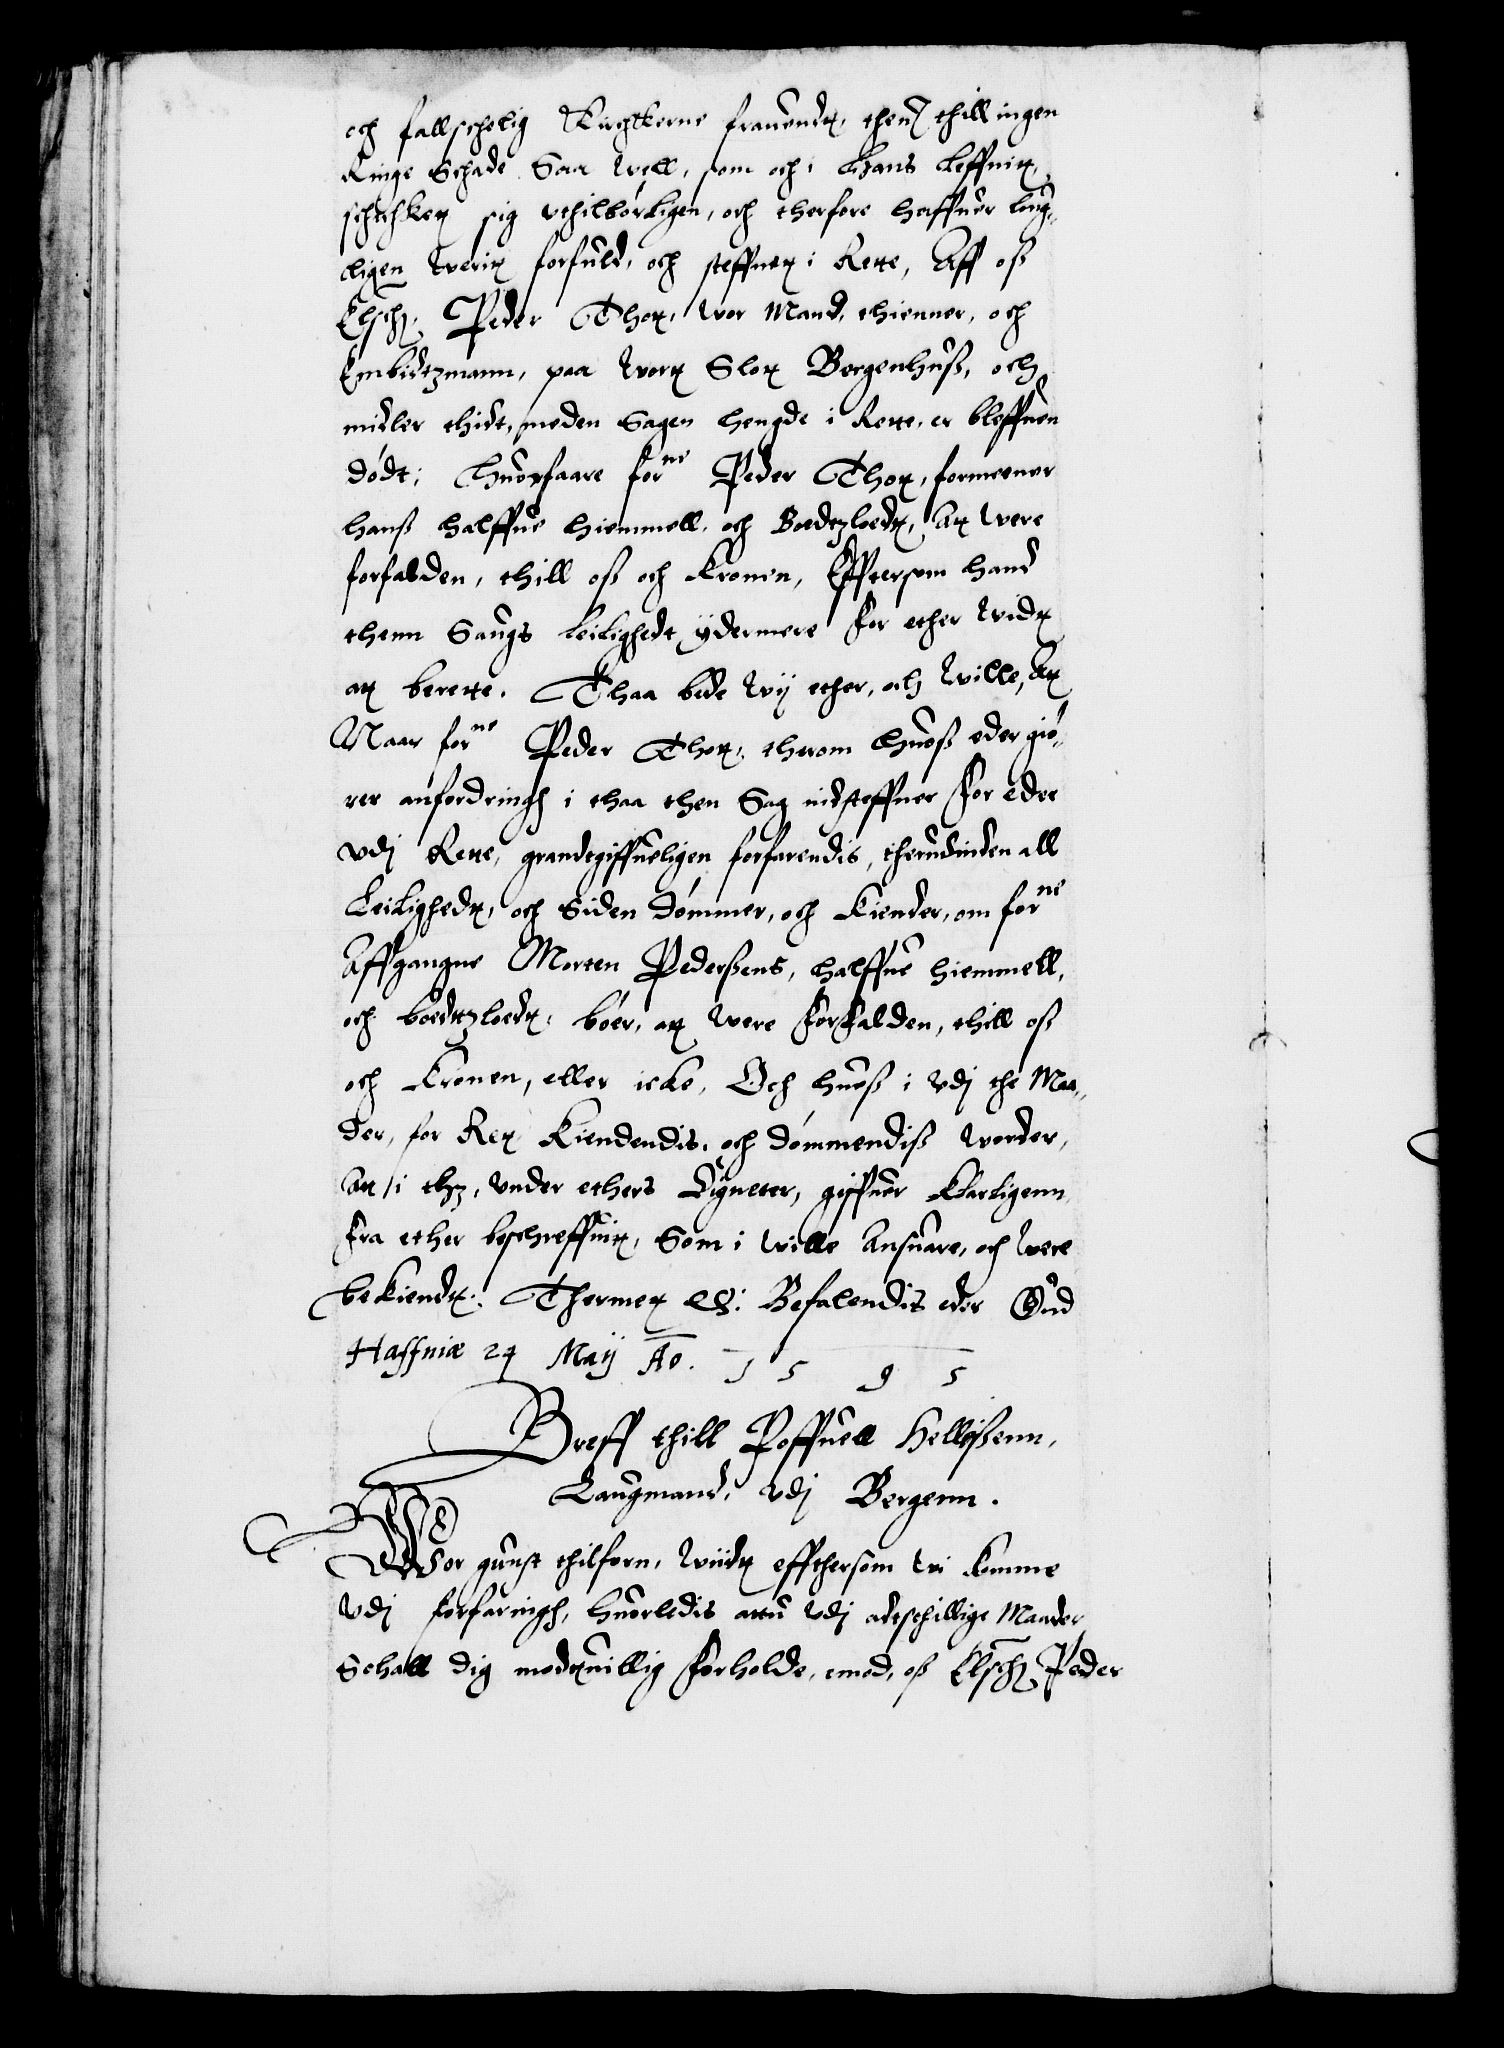 och fallschelig Kirckerne frauendt, thenn thill ingen
Ringe Schade Saa well, som och i hans leffnitt,
schichket sig vthilbørligen, och therfore haffuer loug¬
ligen werit forfuld, och steffnet i Rette, Aff oss
Elsch: Peder Thott, wor Mand, thienner, och
Embitzmann, paa wort Slot Bergenhuss, och
midler thidt, meden Sagen hengde i Rette, er bleffuen
dødt; huorfaare forne Peder Thott, formeener
hanss halffue hiemmell, och Boedtzloedt, Att were
forfalden, thill oss och Kronen, Effttersom hand
thenn Saugs leilighedt ydermere for ether widt
att berette. Thaa bede wij ether, och wille, At
Naar forne Peder Thott, therom huoss eder giø¬
rer anfordringh i thaa then Sag indsteffner for eder
vdj Rette, grandtgiffueligen forfarendis, therudinden all
Leilighedt, och Siden dømmer, och Kiender, om forne
Affgangne Morten Pederssens, halffue hiemmell,
och boedtzloedt, bøer, att were forfalden, thill oss
och Kronen, eller icke, Och huess i vdj the Maa¬
der, for Ret Kiendendis, och dømmendiss worder,
Att i thz, vnder ethers Signeter, giffuer klarligenn
fra ether beschreffuit, Som i wille Ansuare, och were
bekiendt. Thermet &: Befalendis eder Gud
Haffniæ 24 Maij Ao. 1595
Breff thill Poffuell Hellissenn,
Laugmand, vdj Bergenn.
Wor gunst thilforn, Wiidt effthersom wi komme
vdj forfaringh, huorledis attu vdj adtschillige Maader
Schall dig modtuillig forholde, emod, oss Elsch: Peder